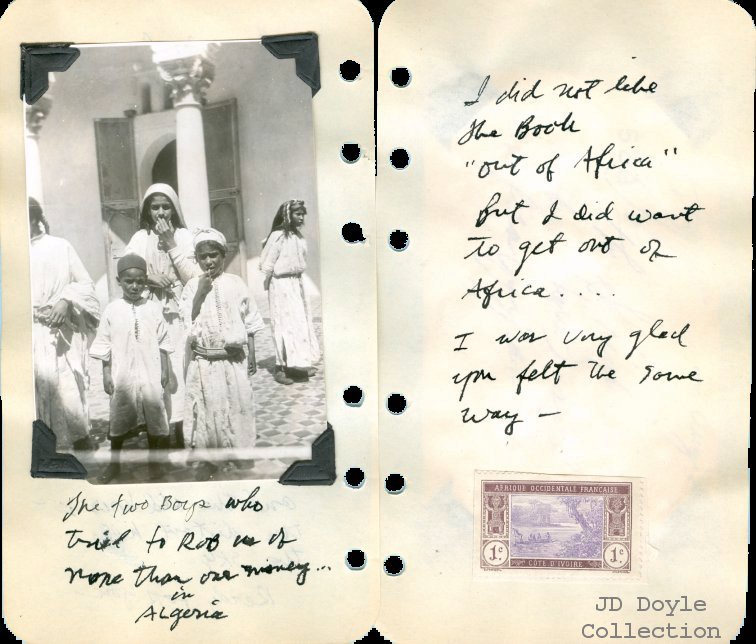 The two Boys who
tried to Rob us of
more than our money...
in
Algeria
I did not like
the Book
"out of Africa"
But I did want
to get out of
Africa....
I was very glad
you felt the same
way —
AFRIQUE OCCIDENTALE FRANÇAISE
1c 1c
CÔTE D'IVOIRE
JD Doyle
Collection